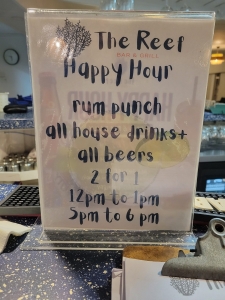 The Reef
BAR & GRILL
Happy Hour
rum punch
all house drinks+
all beers
2 for 1
12pm to 1pm
5pm to 6 pm